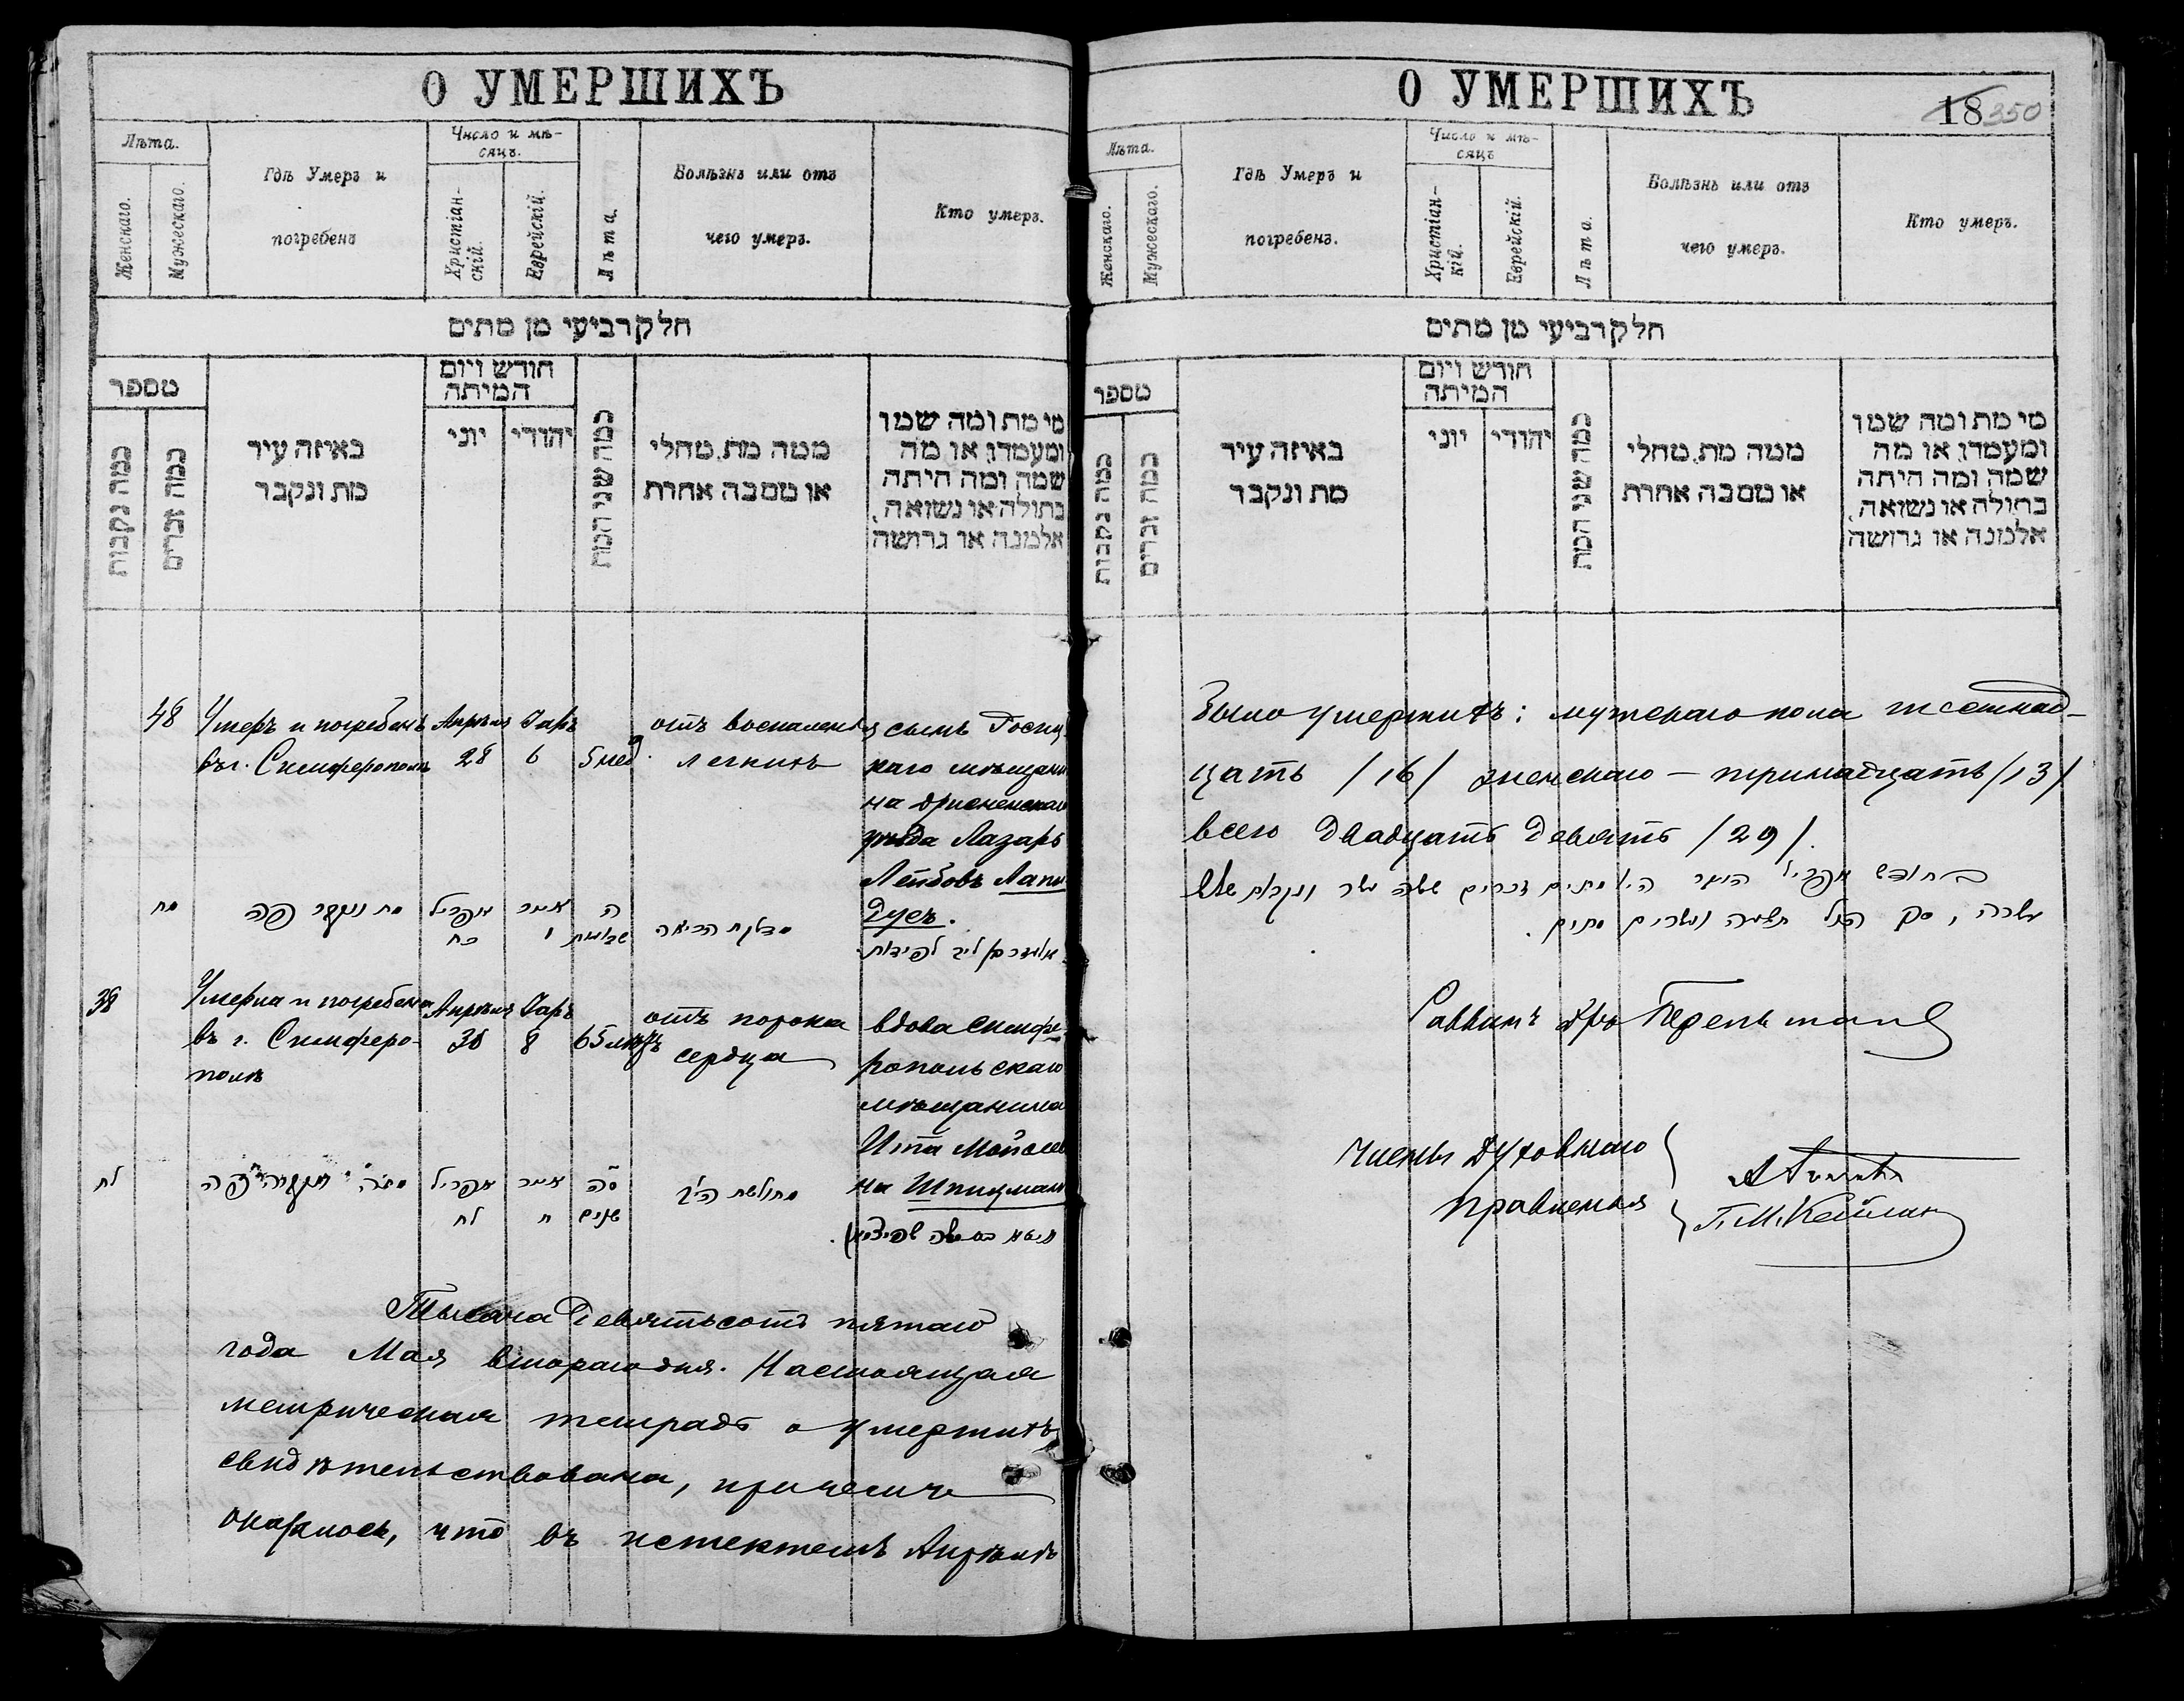 О УМЕРШИХЪ
Лѣта.
Женскаго.
Мужескаго.
Гдѣ Умеръ и
погребенъ
Число и мѣ-
сяцъ.
Христіан-
скій.
Еврейскій.
Лѣта.
Болѣзнь или отъ
чего умеръ.
Кто умеръ.
חלק רביעי מן מתים
מספר
כמה נקבות
כמה זכרים
באיזה עיר
מת ונקבר
חודש ויום
המיתה
יוני
יהודי
כמה שני המת
ממה מת, מחלי
או מסבה אחרת
מי מת ומה שמו
ומעמדו, או מה
שמה ומה היתה
בתולה או נשואה,
אלמנה או גרושה
48
Умеръ и погребенъ
въ г. Симферополѣ
Апрѣля
28
Іаръ
6
5 нед.
отъ воспаленія
легкихъ
сынъ
каго мѣщани
на Дрисненскаго
уѣзда Лазарь
Лейбовъ Лапи
дусъ.
מח
מת ונקבר פה
אפריל
כח
אייר
ו
ה
שבועות
מדלקת הריאה
ליב לפידות.
38
Умерла и погребена
въ г. Симферо-
полѣ
Апрѣля
30
Іаръ
8
65 лѣтъ
отъ порока
сердца
вдова Симфе-
ропольскаго
мѣщанина
Ита Мойсее
на Шпицман
לח
מתה ונקברה פה
אפריל
לח
אייר
ח
סה
שנים
מחולשת הלב
משה שפיצמאן.
Тысяча Девятьсотъ пятаго
года Мая второго дня. Настоящая
метрическая тетрадь о умершихъ
свидѣтельствована, причемъ
оказалось, что въ истекшемъ Апрѣлѣ
О УМЕРШИХЪ
18 350
Лѣта.
Женскаго.
Мужескаго.
Гдѣ Умеръ и
погребенъ.
Число и мѣ-
сяцъ
Христіан-
кій.
Еврейскій.
Лѣта.
Болѣзнь или отъ
чего умеръ.
Кто умеръ.
חלק רביעי מן מתים
מספר
כמה נקבות
כמה זכרים
באיזה עיר
מת ונקבר
חודש ויום
המיתה
יוני
יהודי
כמה שני המת
ממה מת, מחלי
או מסבה אחרת
מי מת ומה שמו
ומעמדו, או מה
שמה ומה היתה
בתולה או נשואה,
אלמנה או גרושה
было умершихъ: мужскаго пола шестнад-
цать /16/ женскаго — тринадцать /13/
всего Двадцать Девять /29/.
בחודש אפריל העבר היו מתים זכרים ששה עשר ונקבות שלש
עשרה, סך הכל תשעה ועשרים מתים.
Раввинъ Перельман
Члены Духовнаго
Правленія